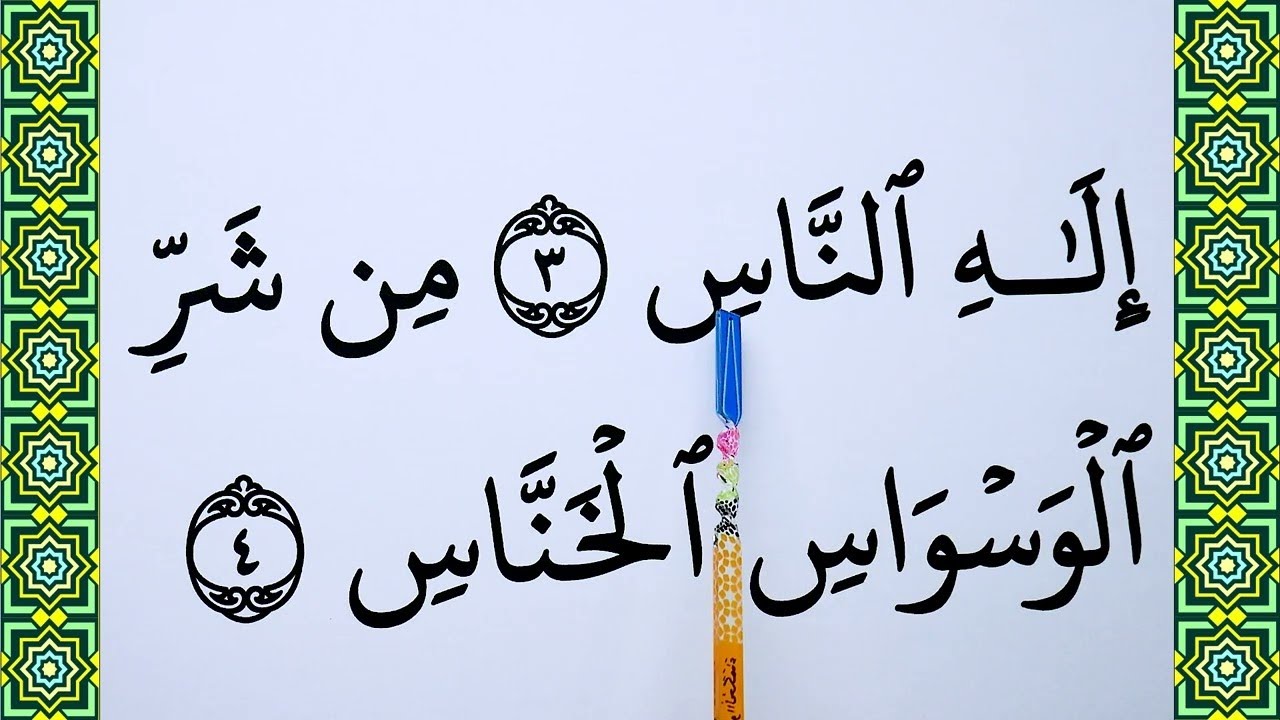 إِلَـٰهِ ٱلنَّاسِ ٣ مِن شَرِّ
ٱلْوَسْوَاسِ ٱلْخَنَّاسِ ٤